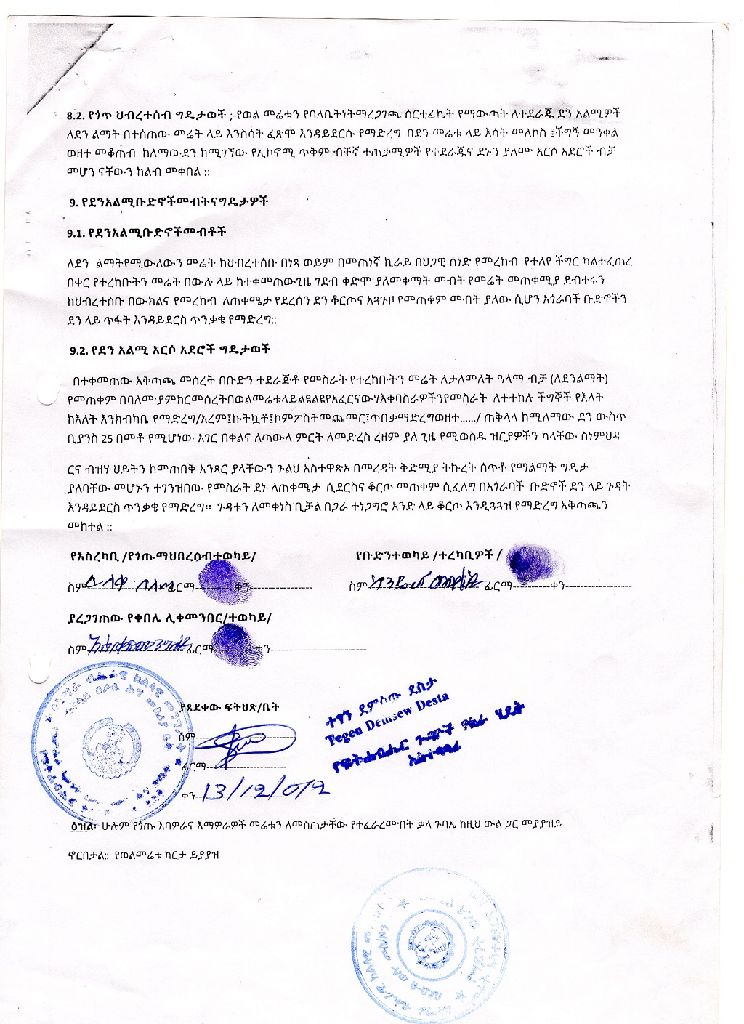 8.2. የጎጥ ህብረተሰብ ግዴታወች ; የወል መሬቱን የባለቤትነትማረጋገጫ ሰርተፊኬት የማውጣት ለተደራጁ ደን አልሚዎች
ለደን ልማት በተሰጠው መሬት ላይ እንስሳት ፈጽሞ እንዳይደርሱ የማድረግ በደን መሬቱ ላይ እሳት መለኮስ ፤ችግኝ መንቀል
ወዘተ መቆጠብ ከለማው ደን ከሚገኘው የኢኮኖሚ ጥቅም ብቸኛ ተጠቃሚዎች የተደራጁና ደኑን ያለሙ አርሶ አደሮች ብቻ
መሆን ናቸውን ከልብ መቀበል ::
9. የደንአልሚቡድኖችመብትናግዴታዎች
9.1. የደንአልሚቡድኖችመብቶች
ለደን ልማትየሚውለውን መሬት ከህብረተሰቡ በነጻ ወይም በመጠነኛ ኪራይ በህጋዊ ሰነድ የመረከብ የተለየ ችግር ካልተፈጠረ
በቀር የተረከቡትን መሬት በውሉ ላይ ከተቀመጠውጊዜ ገደብ ቀድሞ ያለመቀማት መብት የመሬት መጠቀሚያ ደብተሩን
ከህብረተሰቡ በውክልና የመረከብ ለጠቀሜታ የደረሰን ደን ቆርጦና አጓጉዞ የመጠቀም መብት ያለው ሲሆን አጎራባች ቡድኖችን
ደን ላይ ጥፋት እንዳይደርስ ጥንቃቄ የማድረግ::
9.2. የደን አልሚ አርሶ አደሮች ግዴታወች
በተቀመጠው አቅጣጫ መሰረት በቡድን ተደራጅቶ የመስራት የተረከቡትን መሬት ለታለመለት ዓላማ ብቻ (ለደንልማት)
የመጠቀም በባለሙያምክርመሰረትበወልመሬቱላይ ለተተከሉ ችግኞች የእለት
ከእለት እንክብካቤ የማድረግ/አረም፤ኩትኳቶ፤ኮምፖስትመጨመር፤ጥበቃማድረግወዘተ....../ ጠቅላላ ከሚለማው ደን ውስጥ
ቢያንስ 25 በመቶ የሚሆነው አገር በቀልና ለጣውላ ምርት ለመድረስ ረዘም ያለ ጊዜ የሚወስዱ ዝርያዎችን ካላቸው ስነምህዳ
ርና ብዝሃ ህይወትን ከመጠበቅ አንጻር ያላቸውን ጉልህ አስተዋጽኦ በመረዳት ቅድሚያ ትኩረት ሰጥቶ የማልማት ግዴታ
ያለባቸው መሆኑን ተገንዝበው የመስራት ደኑ ለጠቀሜታ ሲደርስና ቆርጦ መጠቀም ሲፈልግ በአጎራባች ቡድኖች ደን ላይ ጉዳት
እንዳይደርስ ጥንቃቄ የማድረግ። ጉዳቱን ለመቀነስ ቢቻል በጋራ ተነጋግሮ አንድ ላይ ቆርጦ እንዲጓጓዝ የማድረግ አቅጣጫን
መከተል ::
የአስረካቢ /የጎጡማህበረሰብተወካይ/ የቡድንተወካይ /ተረካቢዎች /
ስም ፊርማ ቀን ስም ፊርማ ቀን
ያረጋገጠው የቀበሌ ሊቀመንበር/ተወካይ/
ስም ፊርማ ቀን
የጸደቀው ፍትህጽ/ቤት
ስም
ፊርማ
ቀን 13/12/012
ተገኝ ደምሰው ደስታ
Tegen Demisew Desta
ዕዝል፡ ሁሉም የጎጡ አባዎራና እማዎራዎች መሬቱን ለመስጠታቸው የተፈራረሙበት ቃለ ጉባኤ ከዚህ ውል ጋር መያያዝይ
ኖርበታል:: የወልመሬቱ ካርታ ይያያዝ